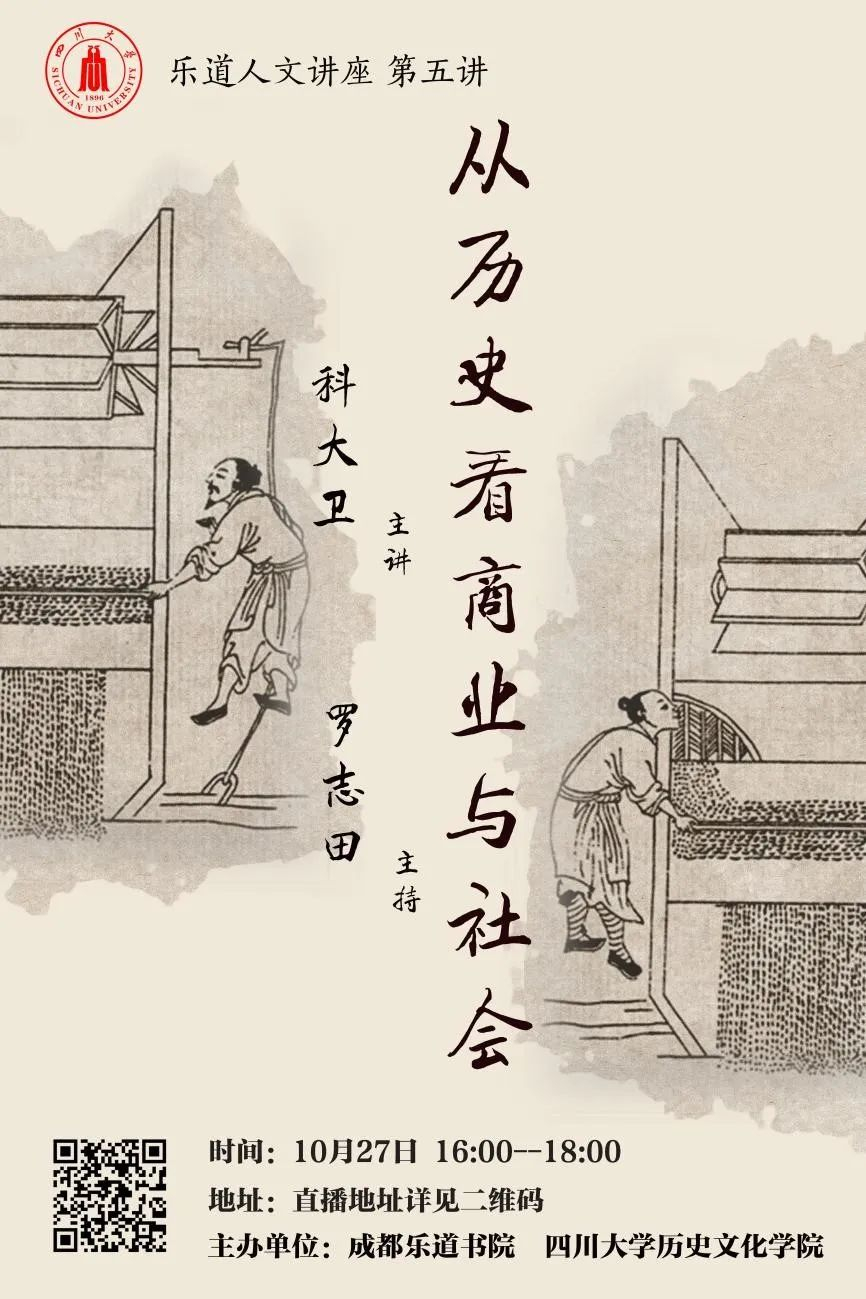 四川大学
1896
SICHUAN UNIVERSITY
乐道人文讲座 第五讲
从历史看商业与社会
科大卫
主讲
罗志田
主持
时间：10月27日 16:00--18:00
地址：直播地址详见二维码
主办单位：成都乐道书院 四川大学历史文化学院